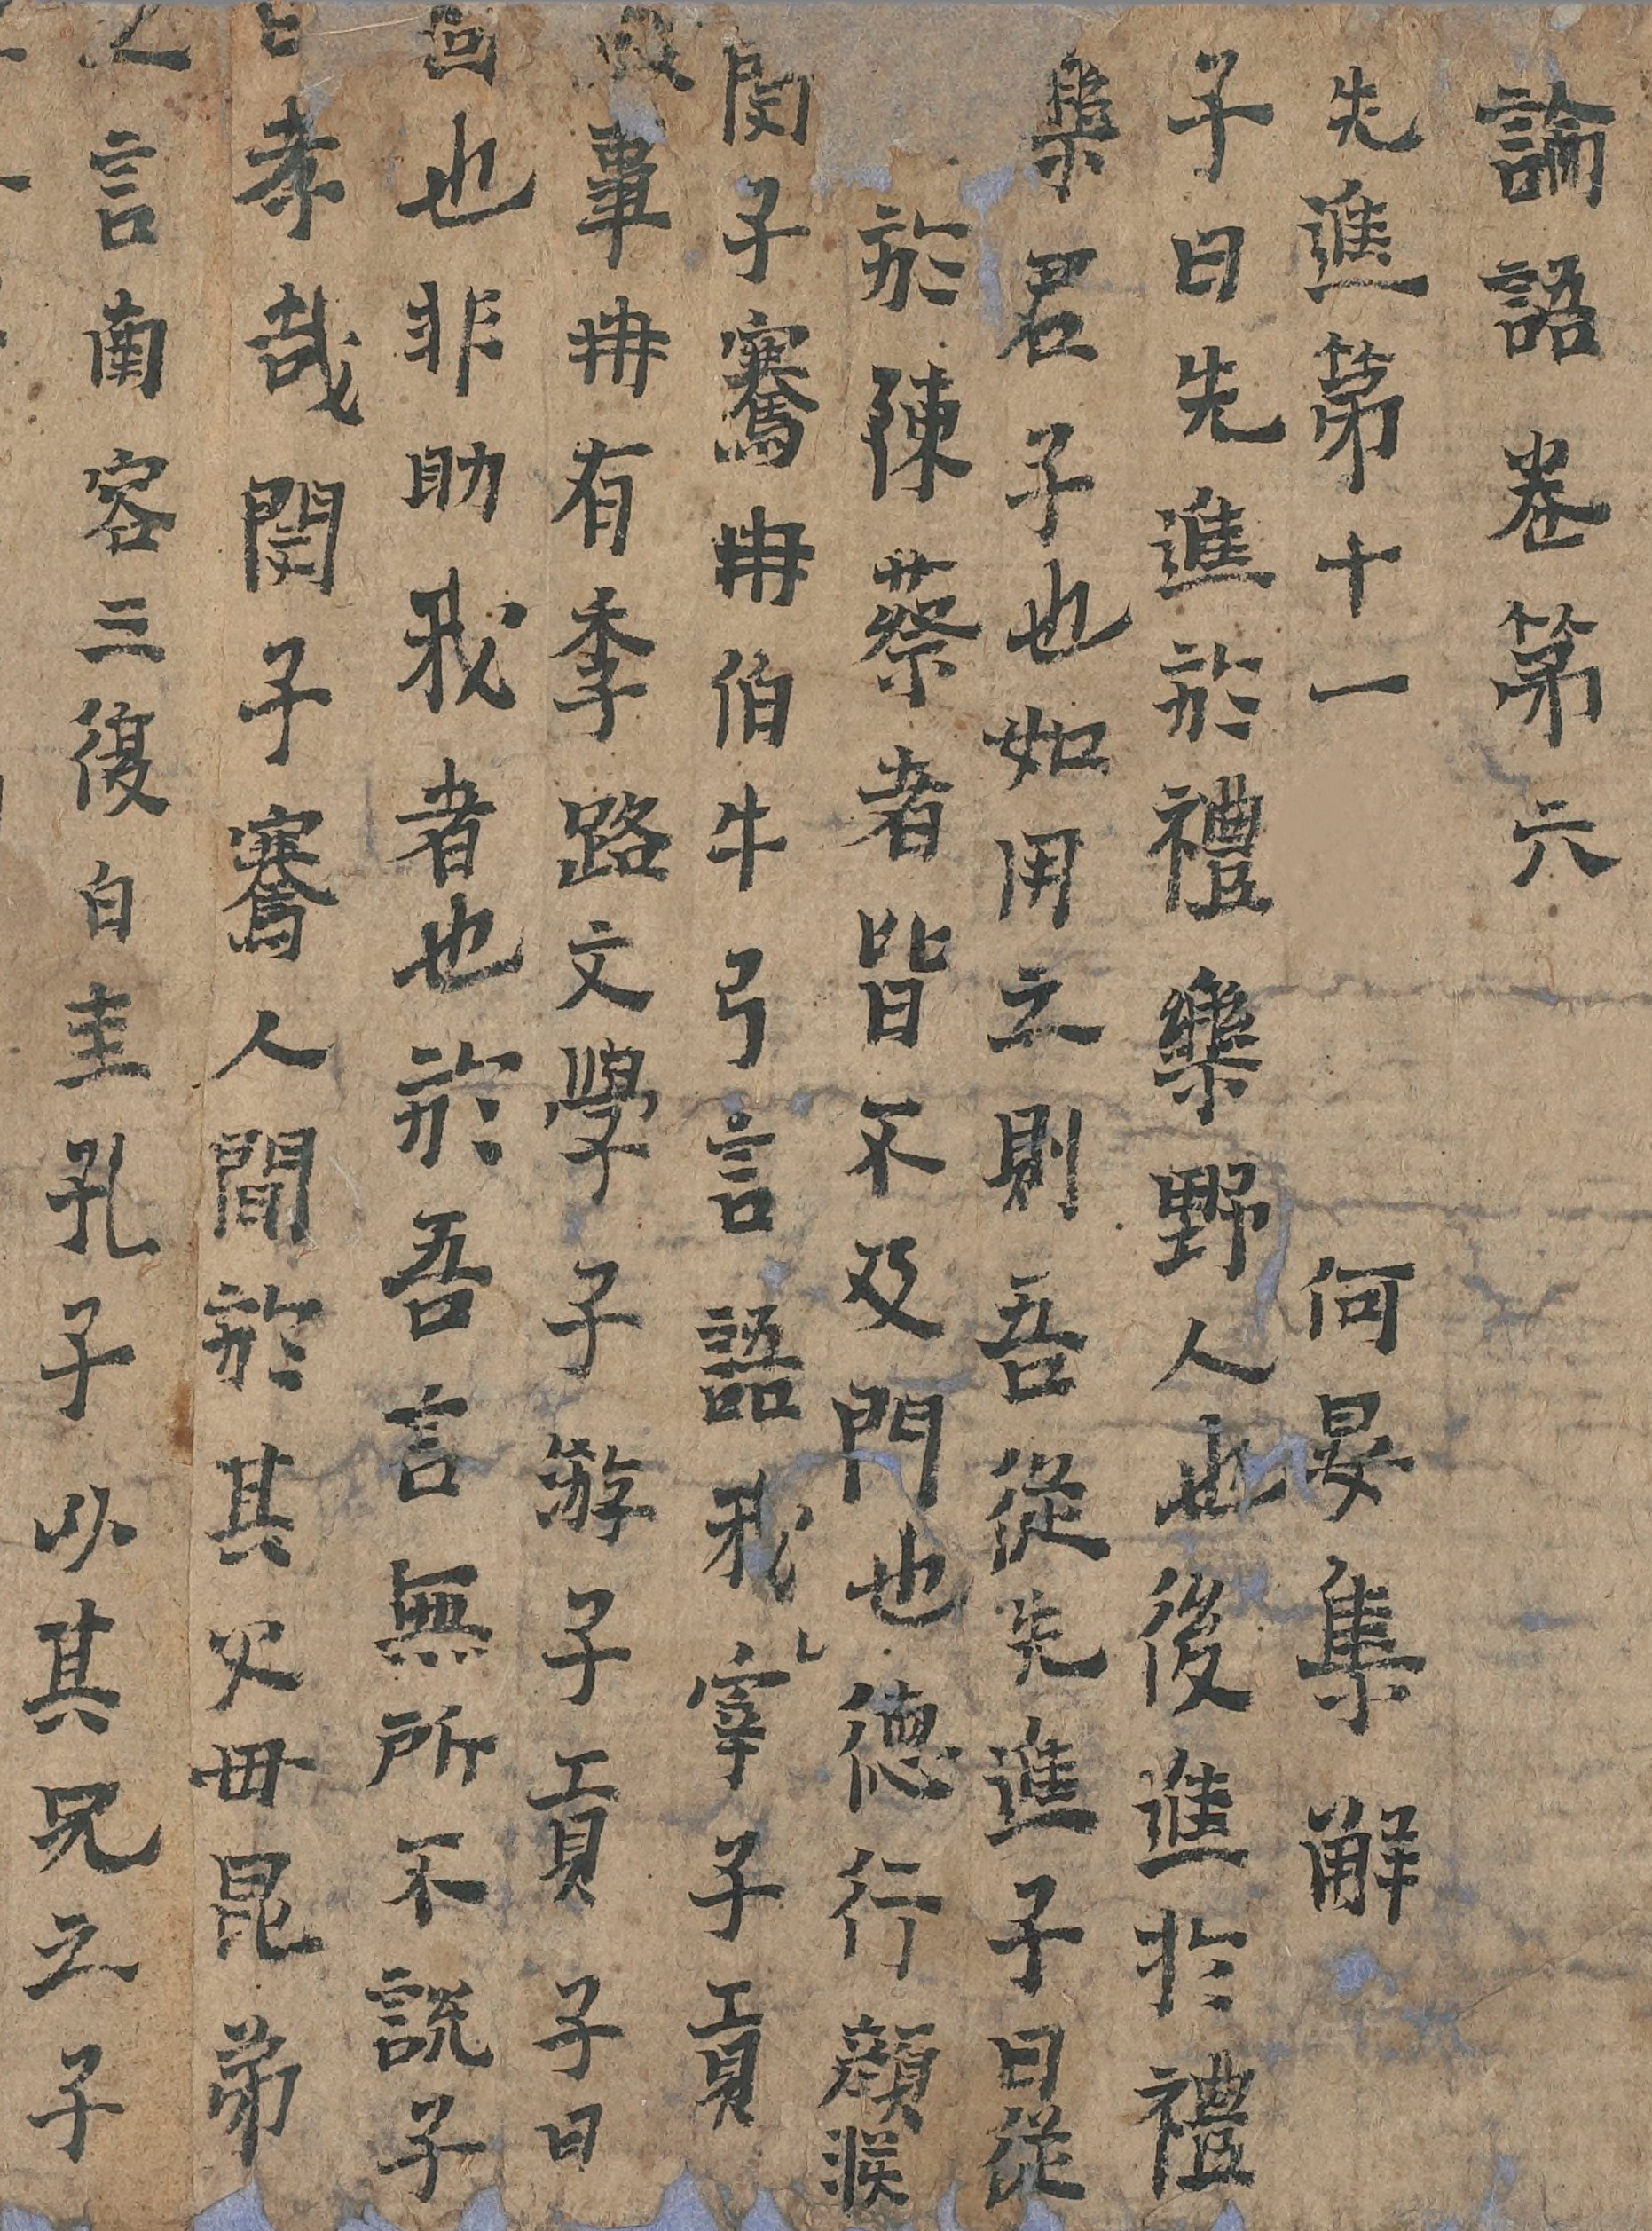 論語卷第六
先進第十一 何晏集解
子曰先進於禮樂野人也後進於禮
樂君子也如用之則吾從先進子曰從
於陳蔡者皆不及門也德行顏淵
閔子騫冉伯牛弓言語我宰子子貢
事冉有季路文學子游子子貢子曰
回也非助我者也於吾言無所不說子
曰孝哉閔子騫人間於其父母昆弟
之言南容三復白圭孔子以其兄之子